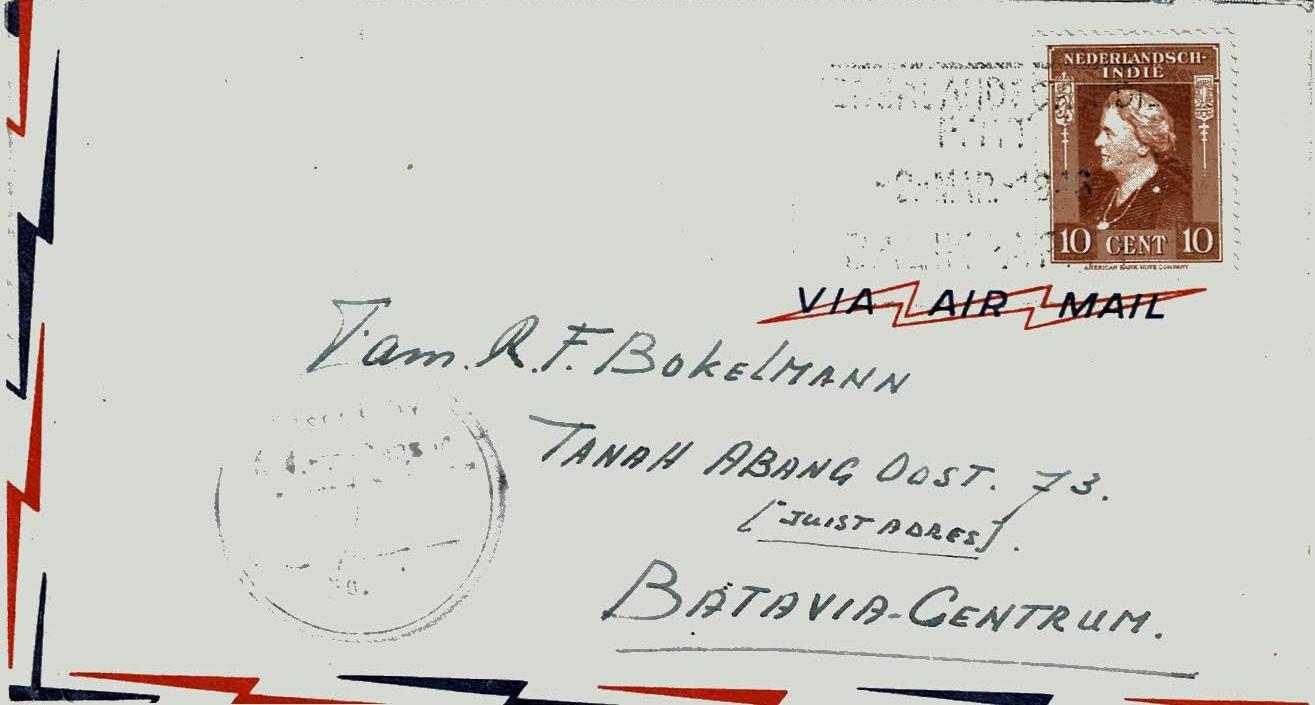 NEDERLANDSCH-
INDIE
10 CENT 10
AMERICAN BANK NOTE COMPANY
VIA AIR MAIL
Fam. R.F. BOKELMANN
TANAH ABANG OOST. 73.
[JUIST ADRES].
BATAVIA-CENTRUM.